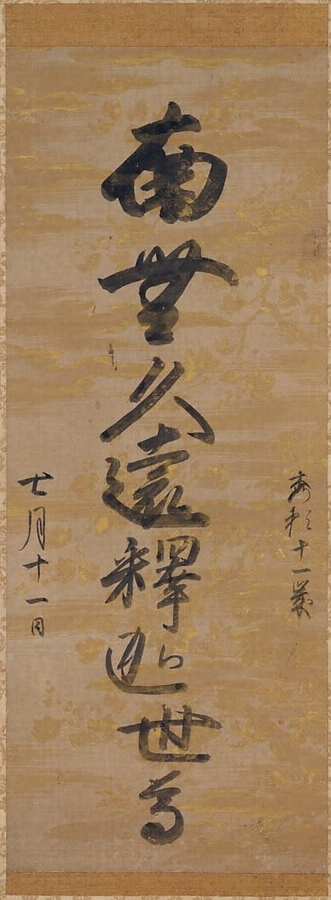 秀頼十一歳
南無久遠釋迦世尊
七月十一日